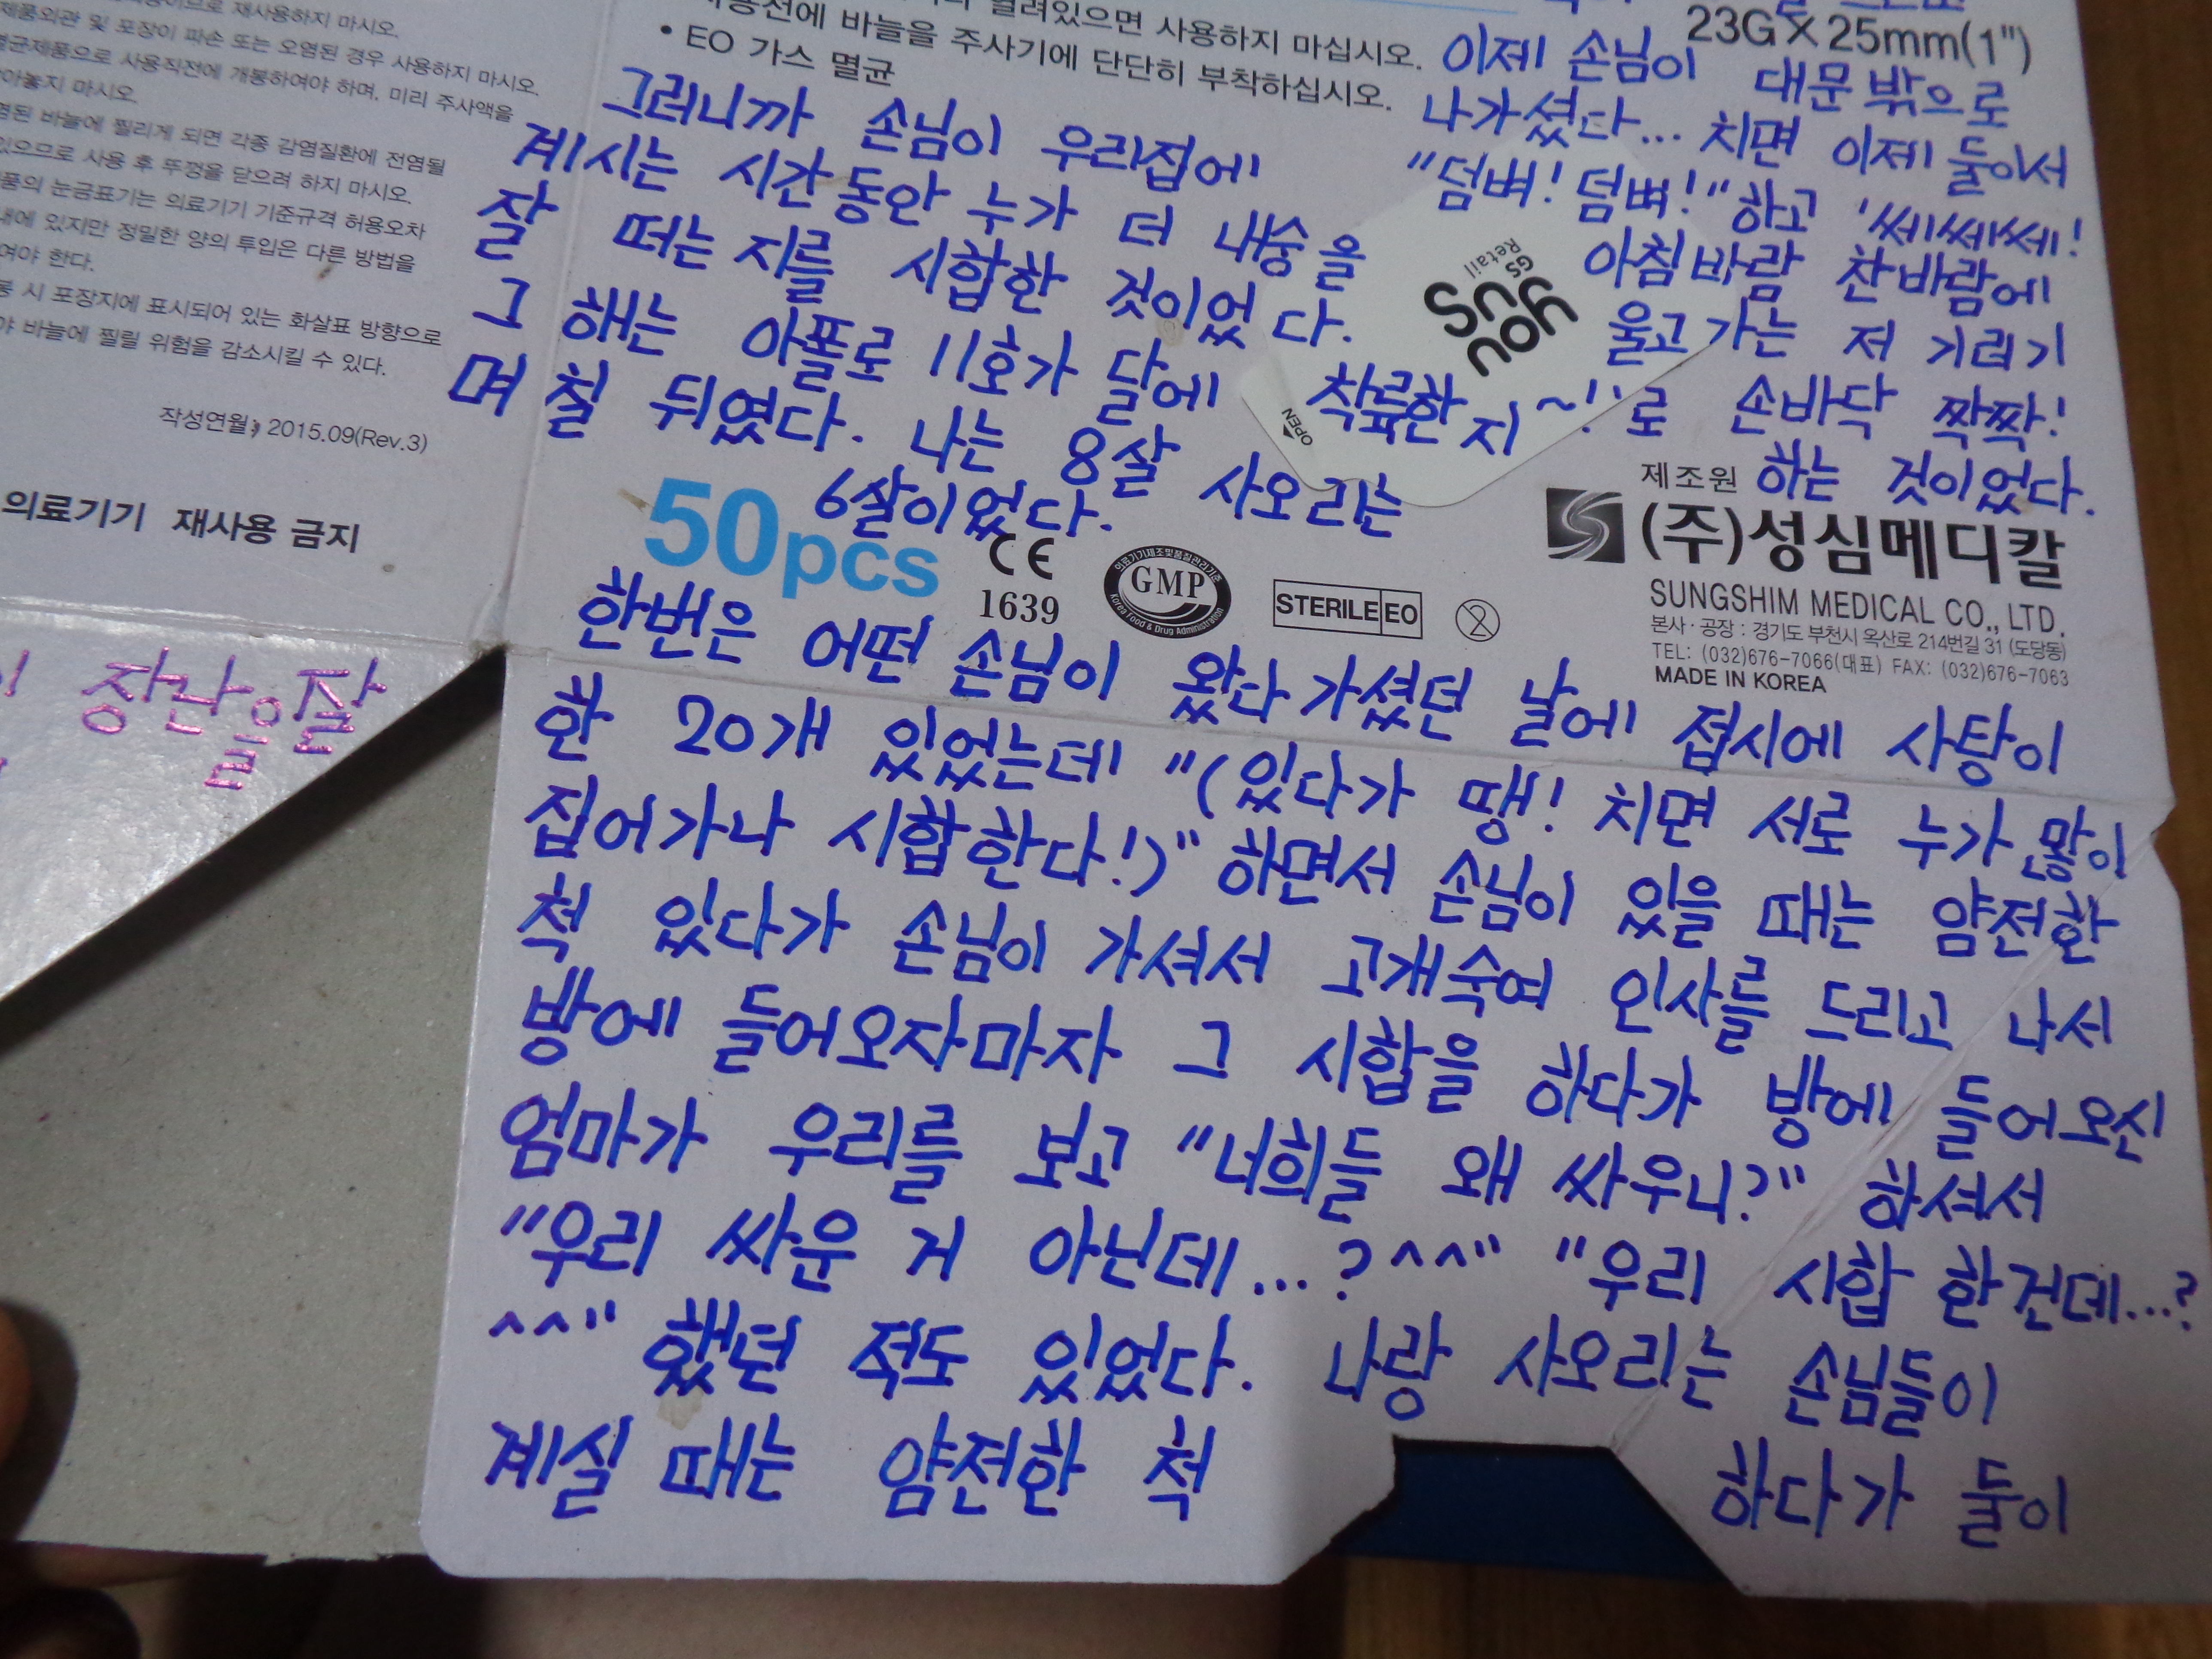 재사용하지 마시오.
제품외관 및 포장이 파손 또는 오염된 경우 사용하지 마시오.
멸균제품으로 사용직전에 개봉하여야 하며, 미리 주사액을
마시오.
바늘에 찔리게 되면 각종 감염질환에 전염될
있으므로 사용 후 뚜껑을 닫으려 하지 마시오.
눈금표기는 의료기기 기준규격 허용오차
있지만 정밀한 양의 투입은 다른 방법을
한다.
시 포장지에 표시되어 있는 화살표 방향으로
바늘에 찔릴 위험을 감소시킬 수 있다.
작성연월: 2015.09(Rev.3)
의료기기 재사용 금지
장난을 잘
열려있으면 사용하지 마십시오.
바늘을 주사기에 단단히 부착하십시오.
• EO 가스 멸균
23G X 25mm(1")
그러니까 손님이 우리집에
계시는 시간동안 누가 더 내숭을
잘 떠는 지를 시합한 것이었다.
그 해는 아폴로 11호가 달에 착륙한지
며칠 뒤였다. 나는 8살 사오리는
6살이었다.
이제 손님이 대문 밖으로
나가셨다... 치면 이제 둘이서
"덤벼! 덤벼!" 하고 '쎄쎄쎄!
아침바람 찬바람에
울고 가는 저 기러기
~!'로 손바닥 짝짝!
하는 것이었다.
GS Retail
YOU US
OPEN
50pcs
CE 1639
의료기기제조및품질관리기준
GMP
Korea Food & Drug Administration
STERILE EO
2
제조원
(주)성심메디칼
SUNGSHIM MEDICAL CO., LTD.
본사·공장 : 경기도 부천시 옥산로 214번길 31 (도당동)
TEL: (032)676-7066(대표) FAX: (032)676-7063
MADE IN KOREA
한번은 어떤 손님이 왔다 가셨던 날에 접시에 사탕이
한 20개 있었는데 "(있다가 땡! 치면 서로 누가 많이
집어가나 시합한다!)" 하면서 손님이 있을 때는 얌전한
척 있다가 손님이 가셔서 고개숙여 인사를 드리고 나서
방에 들어오자마자 그 시합을 하다가 방에 들어오신
엄마가 우리를 보고 "너희들 왜 싸우니?" 하셔서
"우리 싸운 거 아닌데...?^^" "우리 시합 한건데...?
^^" 했던 적도 있었다. 나랑 사오리는 손님들이
계실 때는 얌전한 척 하다가 둘이